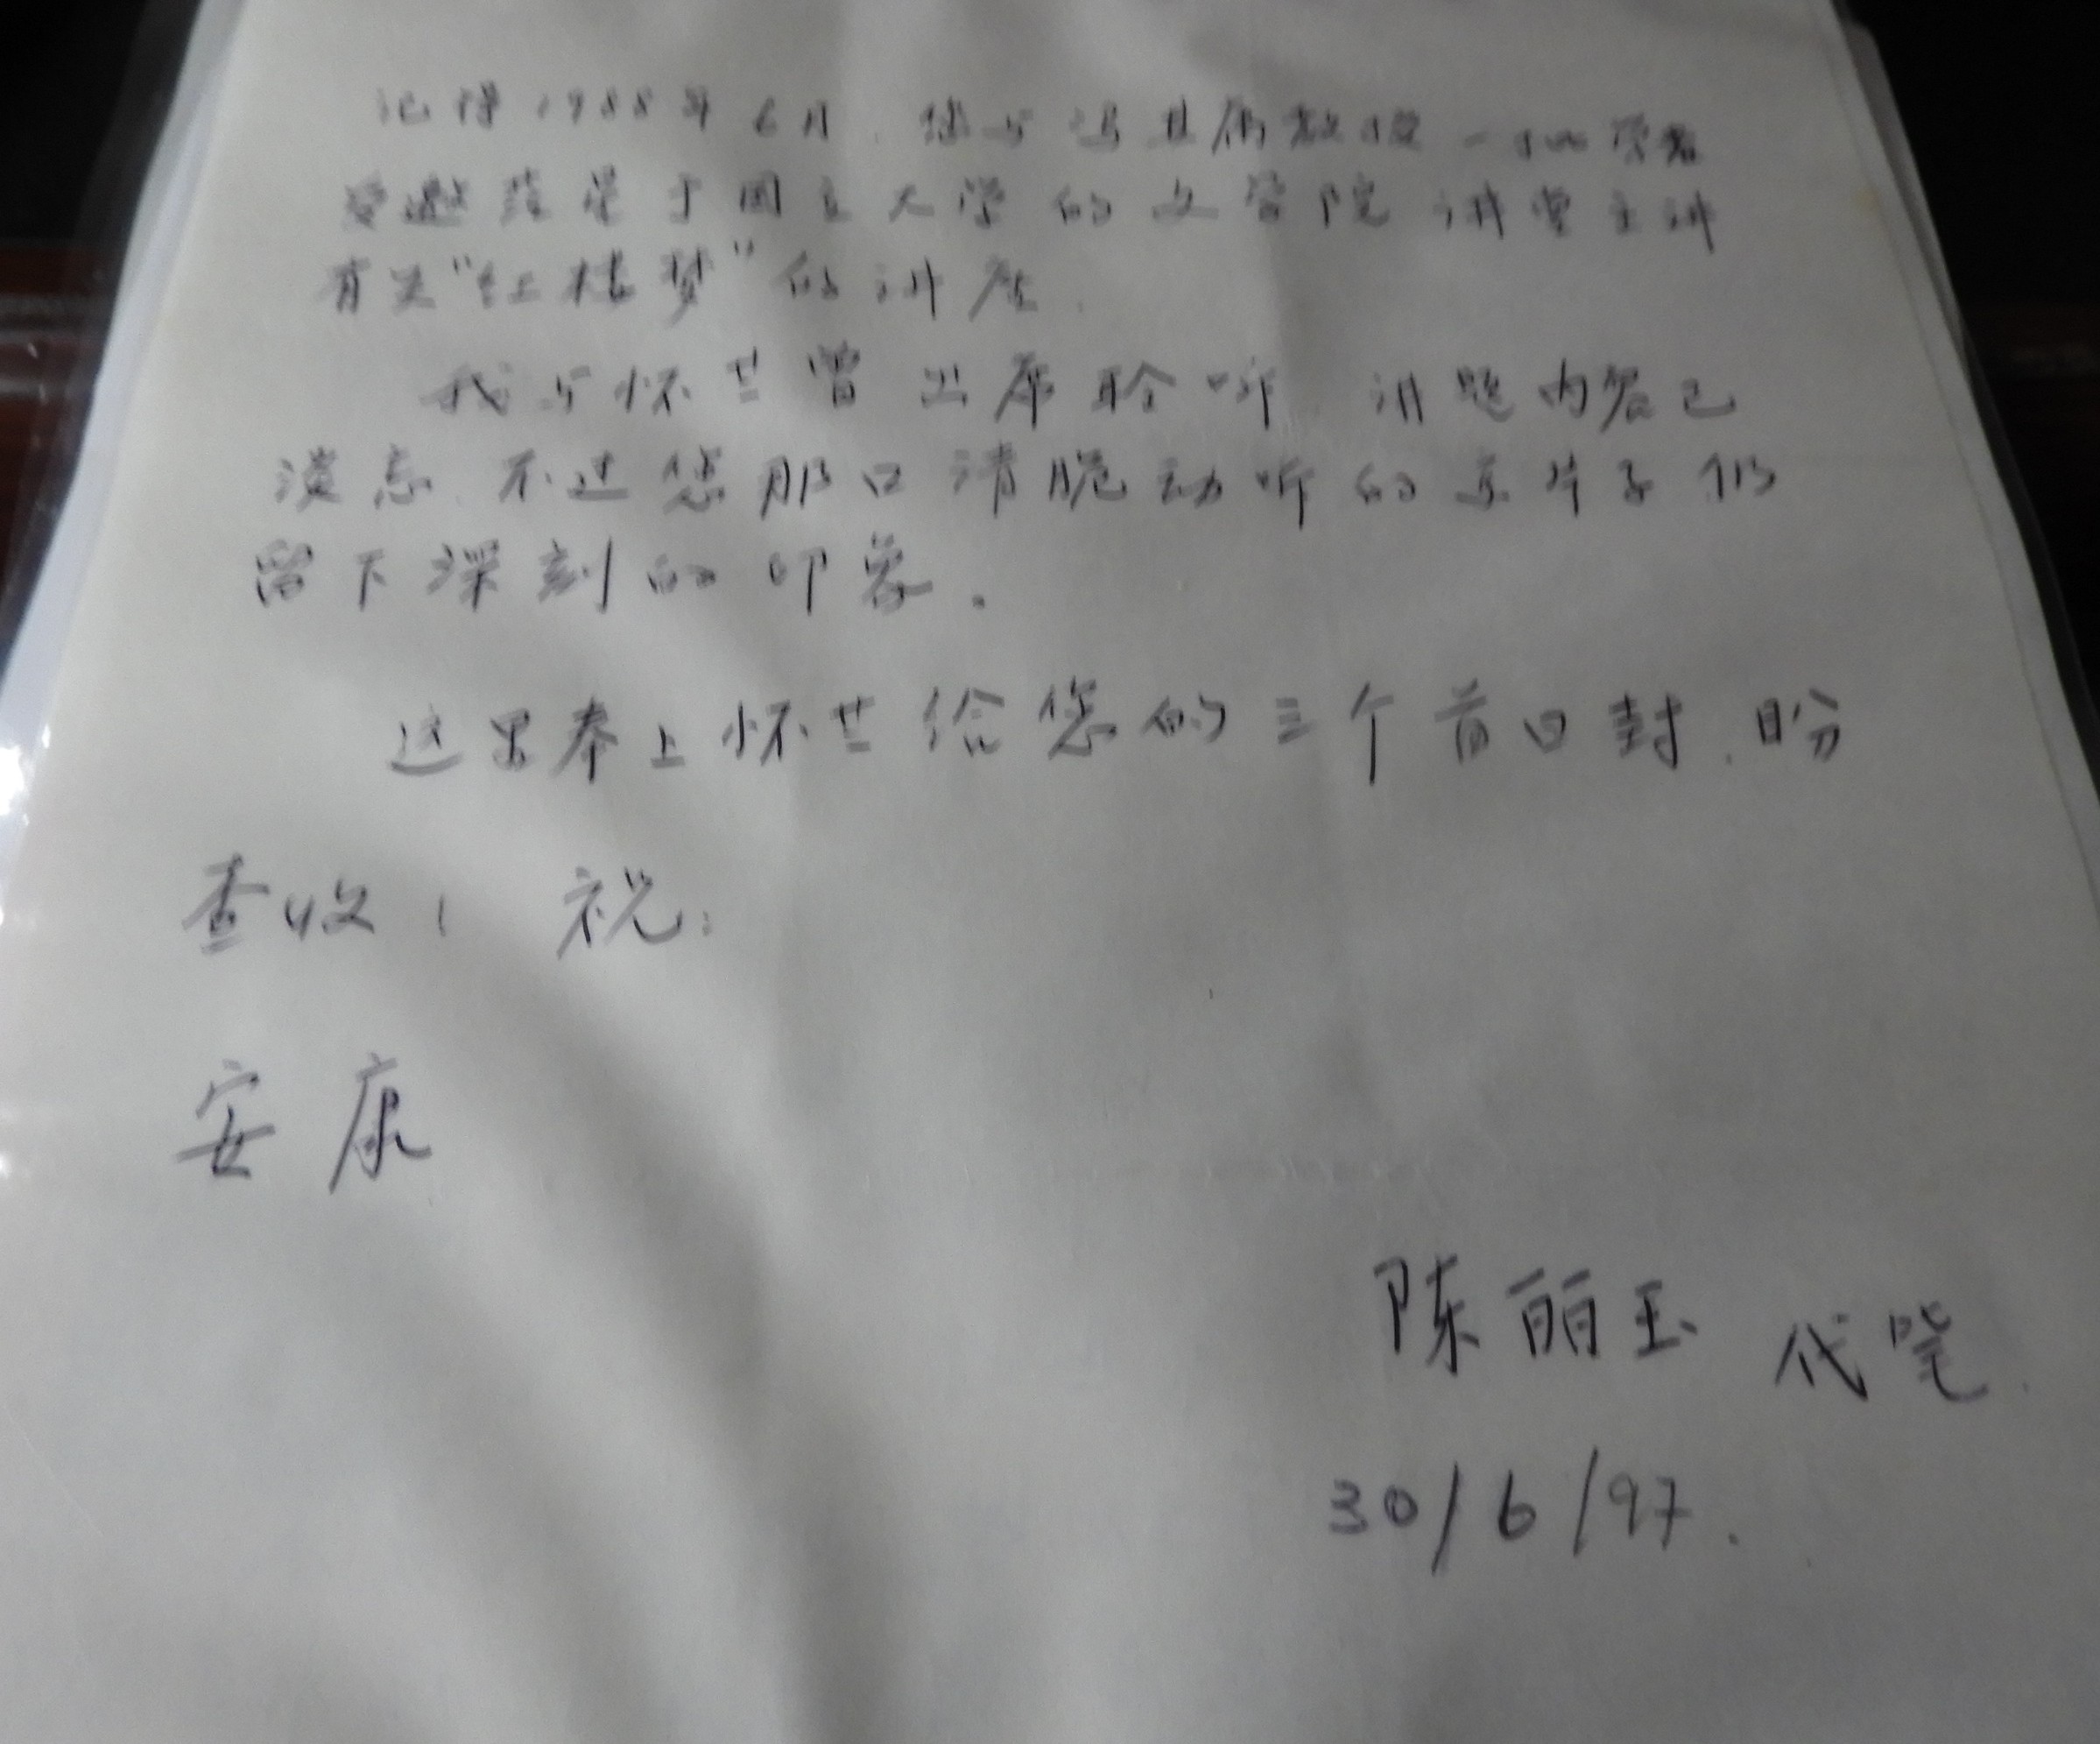 记得1988年6月，您与冯其庸教授一批学者
受邀莅星于国立大学的文学院讲堂主讲
有关“红楼梦”的讲座．
我与怀芒曾出席聆听 讲题内容已
淡忘．不过您那口清脆动听的京片子仍
留下深刻的印象．
这里奉上怀芒给您的三个首日封．盼
查收！ 祝：
安康
陈丽玉 代笔．
30/6/97．